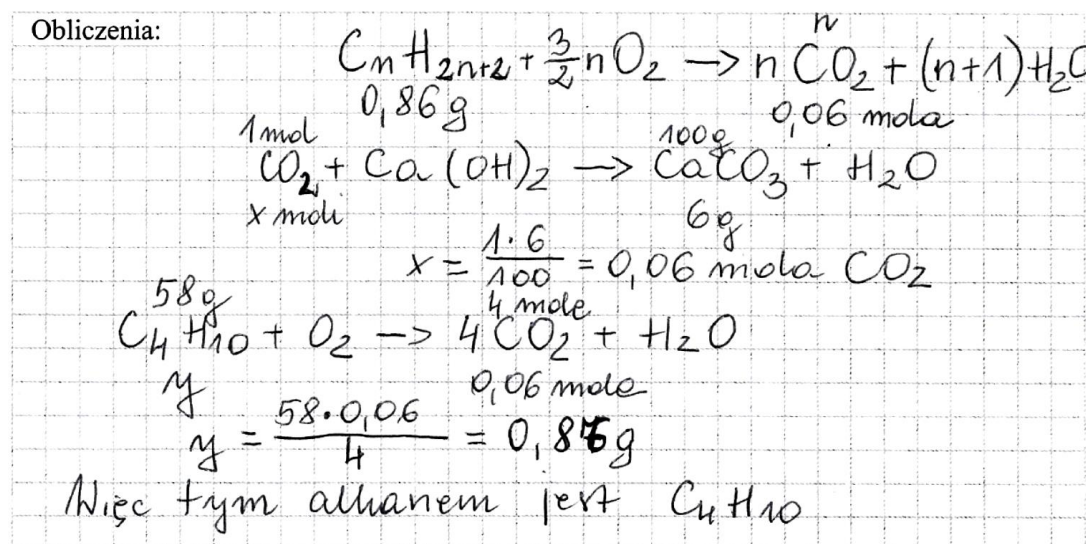 Obliczenia:
n
CnH2n+2 + 3/2 nO2 → nCO2 + (n+1)H2O
0,86g 0,06 mola
1mol 100g
CO2 + Ca(OH)2 → CaCO3 + H2O
x moli 6g
x = 1·6/100 = 0,06 mola CO2
58g 4 mole
C4H10 + O2 → 4CO2 + H2O
y 0,06 mole
y = 58·0,06/4 = 0,86g
Więc tym alkanem jest C4H10